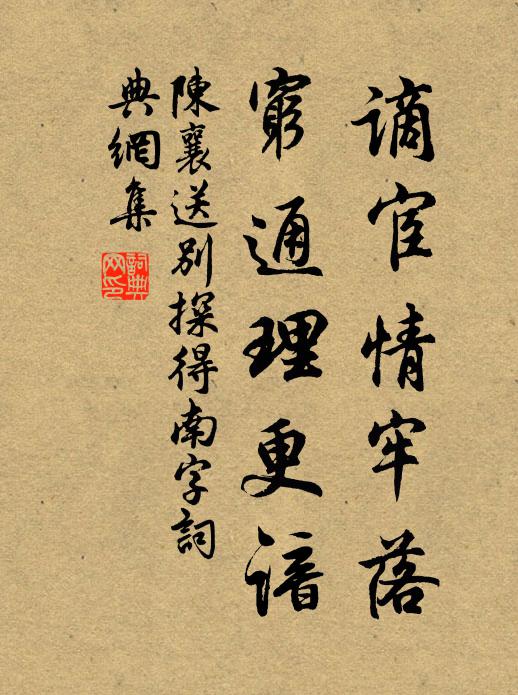 謫宦情牢落
窮通理更諳
陳襄送別探得南字詞
典網集
詞典
网印